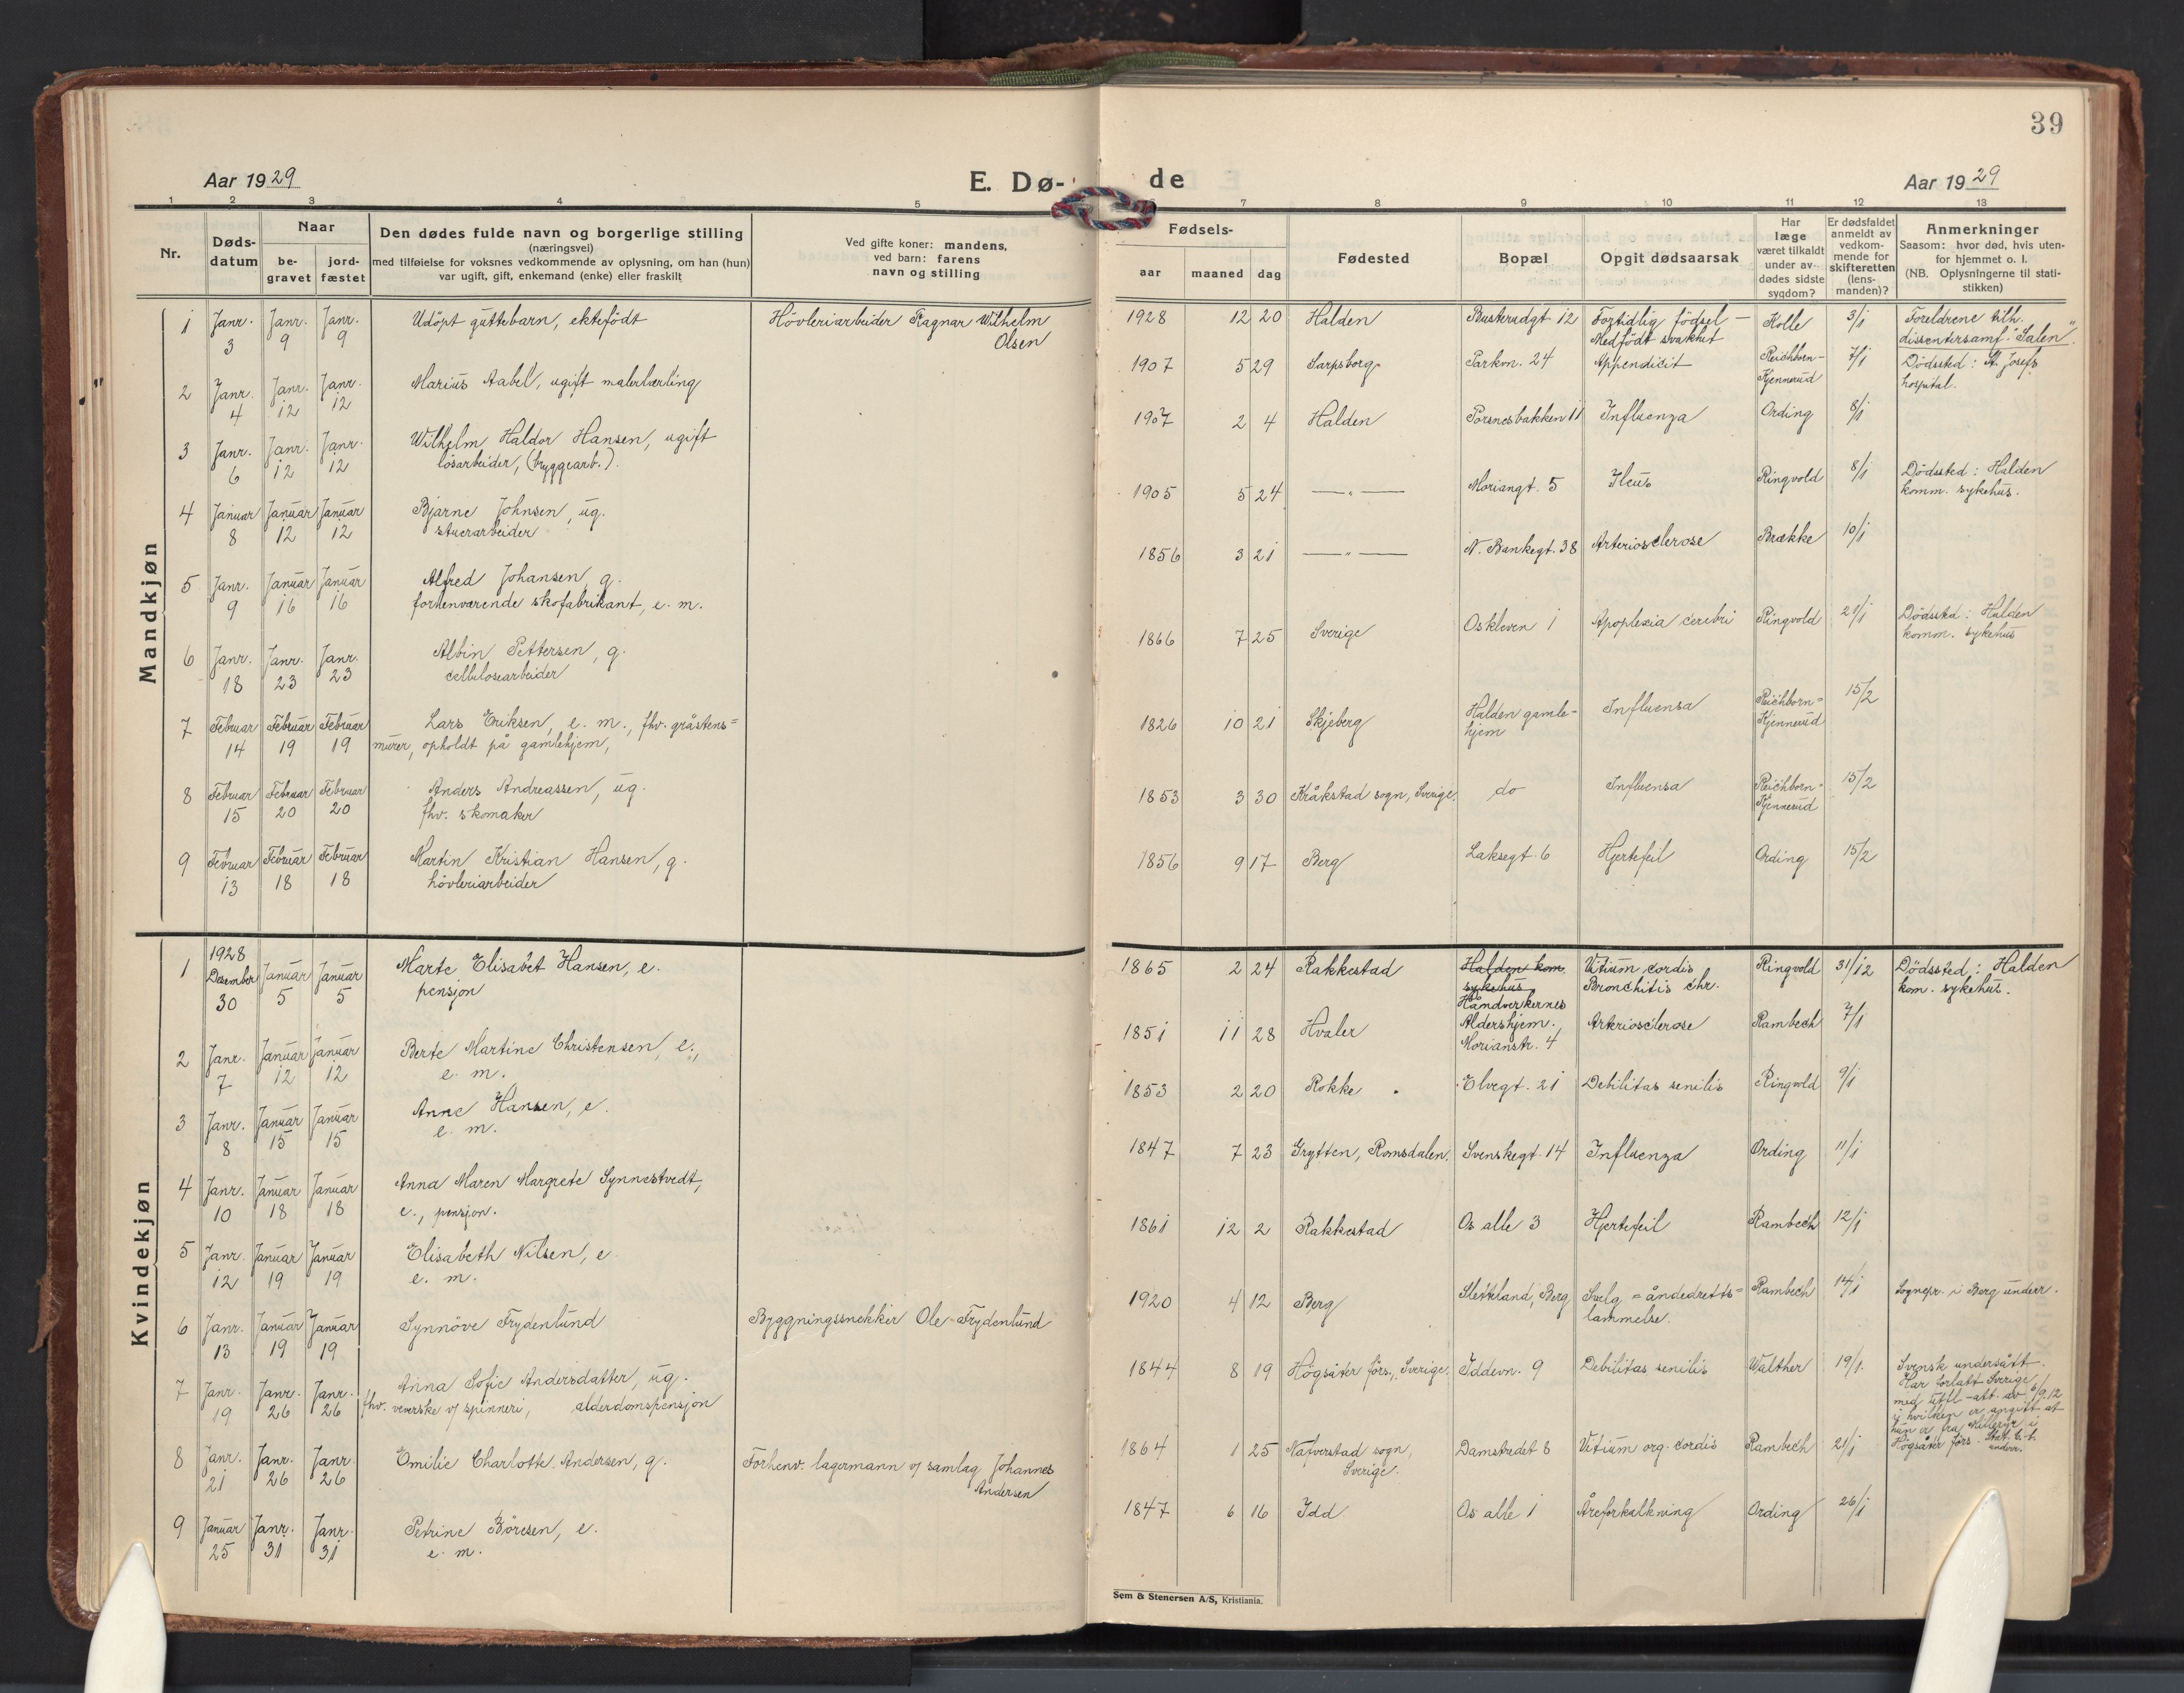 39
Aar 1929
E. Dø-
de
Aar 1929
1 2 3 4 5
7 8 9 10 11 12 13
Nr.
Døds-
datum
Naar
be-
gravet
jord-
fæstet
Den dødes fulde navn og borgerlige stilling
(næringsvei)
med tilføielse for voksnes vedkommende av oplysning, om han (hun)
var ugift, gift, enkemand (enke) eller fraskilt
Ved gifte koner: mandens,
ved barn: farens
navn og stilling
Fødsels-
aar maaned dag
Fødested
Bopæl
Opgit dødsaarsak
Har
læge
været tilkaldt
under av-
dødes sidste
sygdom?
Er dødsfaldet
anmeldt av
vedkom-
mende for
skifteretten
(lens-
manden)?
Anmerkninger
Saasom: hvor død, hvis uten-
for hjemmet o. l.
(NB. Oplysningerne til stati-
stikken)
Mandkjøn
1 Janr. 3 Janr. 9 Janr. 9 Udöpt guttebarn, ektefödt Hövleriarbeider Ragnar Wilhelm
Olsen
2 Janr. 4 Janr. 12 Janr. 12 Marius Aabel, ugift malerlærling
3 Janr. 6 Janr. 12 Janr. 12 Wilhelm Haldor Hansen, ugift
lösarbeider, (bryggearb.)
4 Januar 8 Januar 12 Januar 12 Bjarne Johnsen, ug.
stuerarbeider
5 Janr. 9 Januar 16 Januar 16 Alfred Johansen, g.
forhenværende skofabrikant, e. m.
6 Janr. 18 Janr. 23 Janr. 23 Albin Pettersen, g.
cellulosearbeider
7 Februar 14 Februar 19 Februar 19 Lars Eriksen, e. m., fhv. gråstens=
murer, opholdt på gamlehjem,
8 Februar 15 Februar 20 Februar 20 Anders Andreassen, ug.
fhv. skomaker
9 Februar 13 Februar 18 Februar 18 Martin Kristian Hansen, g.
hövleriarbeider
Kvindekjøn
1 1928 Desember 30 Januar 5 Januar 5 Marte Elisabet Hansen, e.
pensjon
2 Janr. 7 Januar 12 Januar 12 Berte Martine Christensen, e.,
e. m.
3 Janr. 8 Januar 15 Januar 15 Anne Hansen, e.
e. m.
4 Janr. 10 Januar 18 Januar 18 Anna Maren Margrete Synnestvedt,
e., pensjon.
5 Janr. 12 Januar 19 Januar 19 Elisabeth Nilsen, e.
e. m.
6 Janr. 13 Januar 19 Januar 19 Synnöve Frydenlund Byggningssnekker Ole Frydenlund
7 Janr. 19 Janr. 26 Janr. 26 Anna Sofie Andersdatter, ug.
fhv. veverske v/ spinneri, alderdomspensjon
8 Janr. 21 Janr. 26 Janr. 26 Emilie Charlotte Andersen, g. Forhenv. lagermann v/ samlag Johannes
Andersen
9 Januar 25 Janr. 31 Janr. 31 Petrine Böresen, e.
e. m.
1928 12 20 Halden Busterudgt 12 Fortidlig födsel — Kolle 3/1 Foreldrene tilh.
Medfödt svakhet dissentersamf. "Salen".
1907 5 29 Sarpsborg Parkvn. 24 Appendicit Reichborn- 7/1 Dödssted: St. Josefs
Kjennerud hospital.
1907 2 4 Halden Porsnesbakken 11 Influenza Ording 8/1
1905 5 24 —"— Moriangt. 5 Ileus Ringvold 8/1 Dödssted: Halden
komm. sykehus.
1856 3 21 —"— N. Bankegt. 38 Arteriosclerose Brække 10/1
1866 7 25 Sverige Oskleven 1 Apoplexia cerebri Ringvold 21/1 Dödssted: Halden
komm. sykehus
1826 10 21 Skjeberg Halden gamle- Influensa Reichborn= 15/2
hjem Kjennerud
1853 3 30 Kråkstad sogn, Sverige. do Influensa Reichborn= 15/2
Kjennerud
1856 9 17 Berg Laksegt. 6 Hjertefeil Ording 15/2
1865 2 24 Rakkestad Halden kom. Vitium cordis Ringvold 31/12 Dödssted: Halden
sykehus Bronchitis chr. kom. sykehus.
Håndverkernes
1851 11 28 Hvaler Aldershjem., Arteriosclerose Rambech 7/1
Morianstr. 4
1853 2 20 Rokke Elvegt. 21 Debilitas senilis Ringvold 9/1
1847 7 23 Grytten, Romsdalen. Svenskegt. 14 Influenza Ording 11/1
1861 12 2 Rakkestad Os alle 3 Hjertefeil Rambech 12/1
1920 4 12 Berg Slettland, Berg Svelg = åndedretts= Rambech 14/1 Sognepr. i Berg underr.
lammelse.
1844 8 19 Högsäter förs., Sverige. Iddevn. 9 Debilitas senilis Walther 19/1. Svensk undersått.
Har forlatt Sverige
med utfl-att. av 6/9 12
i hvilken er angitt at
hun er fra
Högsäter förs.
underr.
1864 1 25 Nafverstad sogn, Damstredet 8 Vitium org. cordis Rambech 21/1
Sverige.
1847 6 16 Idd Os alle 1 Åreforkalkning Ording 26/1
Sem & Stenersen A/S, Kristiania.